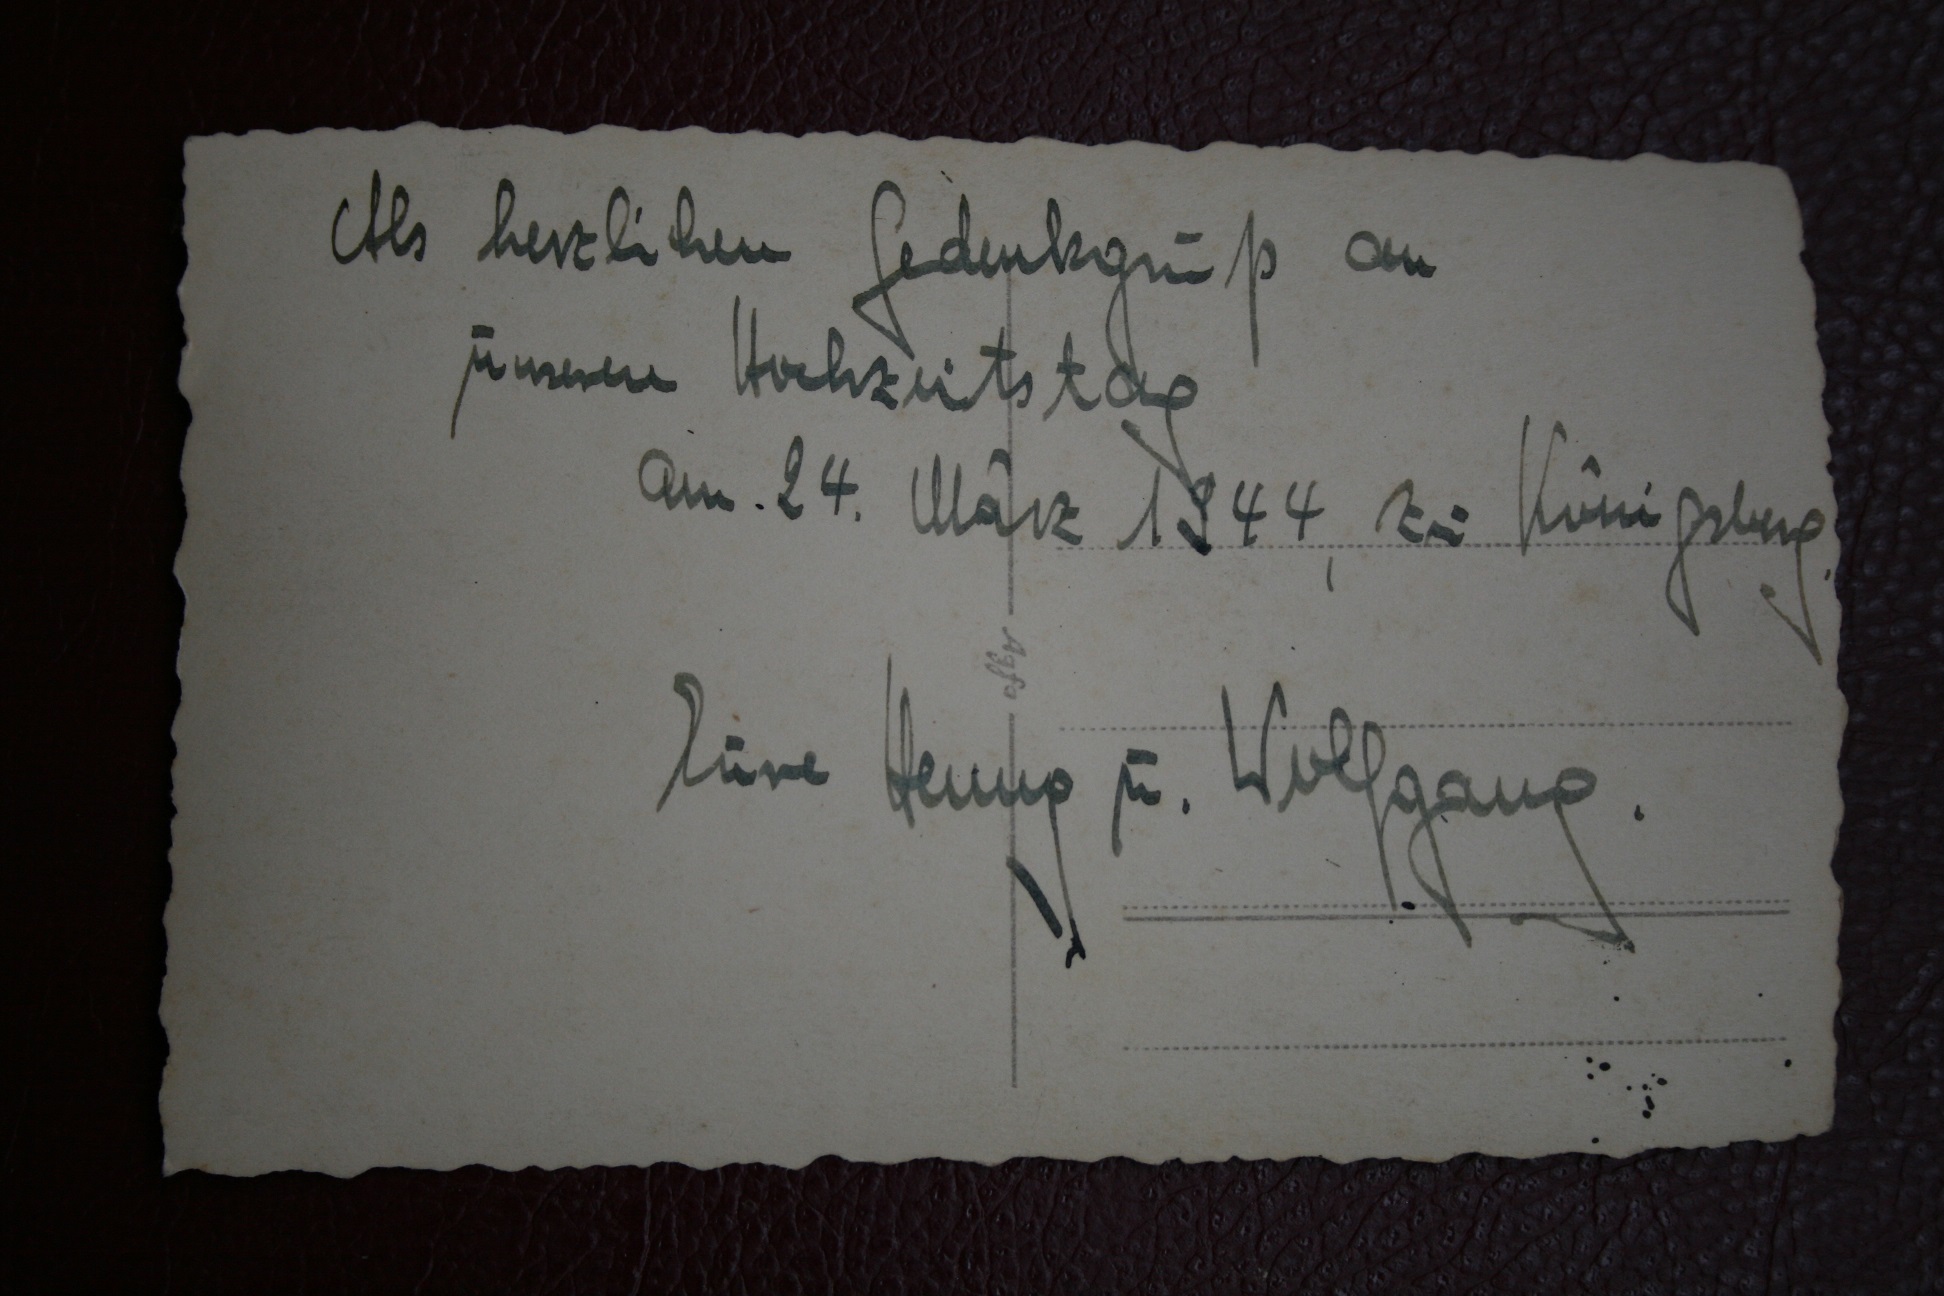 Als herzlichen Gedenkgruß an
unseren Hochzeitstag
am 24. März 1944, zu Königsberg.
Agfa
Eure Henny u. Wolfgang.